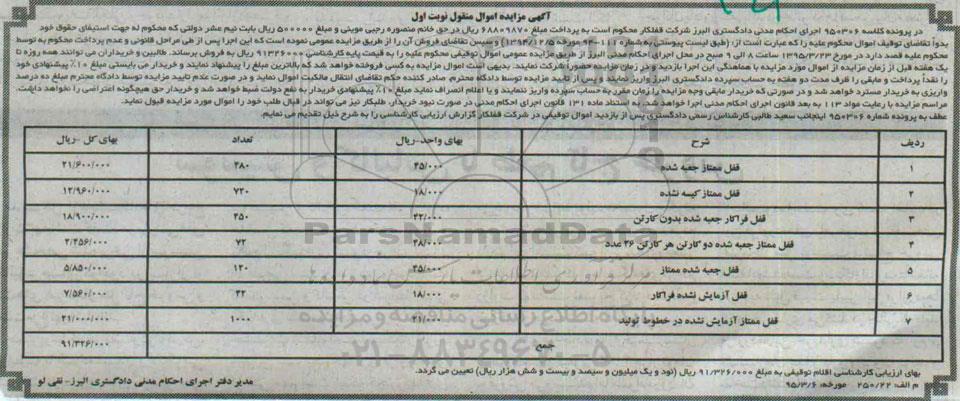 آگهی مزایده اموال منقول نوبت اول
در پرونده کلاسه ۹۵۰۳۰۶ اجرای احکام مدنی دادگستری البرز شرکت قفلکار محکوم است به پرداخت مبلغ ۶۸۸۰۹۸۷۰ ریال در حق خانم منصوره رجبی موینی و مبلغ ۵۰۰۰۰۰ ریال بابت نیم عشر دولتی که محکوم له جهت استیفای حقوق خود
بدواً تقاضای توقیف اموال محکوم علیه را که عبارت است از: (طبق لیست پیوستی به شماره ۱۱۱-۹۴ مورخه ۱۳۹۴/۱۲/۵) و سپس تقاضای فروش آن را از طریق مزایده عمومی نموده است که این اجرا پس از طی مراحل قانونی و عدم پرداخت محکوم به توسط
محکوم علیه قصد دارد در مورخ ۱۳۹۵/۳/۲۳ ساعت ۸ الی ۹ صبح در محل اجرای احکام مدنی دادگستری البرز از طریق مزایده عمومی اموال توقیفی محکوم علیه را به قیمت پایه کارشناسی ۹۱۳۲۶۰۰۰ ریال به فروش برساند. طالبین و خریداران می توانند همه روزه تا
یک هفته قبل از زمان مزایده از اموال مورد مزایده با هماهنگی این اجرا بازدید و در زمان مزایده حضوراً شرکت نمایند. بدیهی است اموال مزایده به کسی فروخته خواهد شد که بالاترین مبلغ را پیشنهاد نمایند و خریدار می بایستی مبلغ ۱۰٪ پیشنهادی خود
را نقداً پرداخت و مابقی را ظرف مدت دو هفته به حساب سپرده دادگستری البرز واریز نمایند و پس از تایید مزایده توسط دادگاه محترم، صادر کننده حکم تقاضای انتقال مالکیت اموال نماید و در صورت عدم تایید مزایده توسط دادگاه محترم مبلغ ده درصد
واریزی به خریدار مسترد خواهد شد و در صورتی که خریدار مابقی وجه مزایده را زمان مقرر به حساب سپرده واریز ننمایند و یا اعلام انصراف نماید مبلغ ۱۰٪ پیشنهادی خریدار به نفع دولت ضبط خواهد شد و خریدار حق هیچگونه اعتراضی را نخواهد داشت.
مراسم مزایده با رعایت مواد ۱۱۳ به بعد قانون اجرای احکام مدنی اجرا خواهد شد. به استناد ماده ۱۳۱ قانون اجرای احکام مدنی در صورت نبود خریدار، طلبکار نیز می تواند در قبال طلب خود را اموال مورد مزایده قبول نماید.
عطف به پرونده شماره ۹۵۰۳۰۶ اینجانب سعید طالبی کارشناس رسمی دادگستری پس از بازدید اموال توقیفی در شرکت قفلکار گزارش ارزیابی کارشناسی را به شرح ذیل تقدیم می نمایم.
ردیف شرح بهای واحد-ریال تعداد بهای کل -ریال
۱ قفل ممتاز جعبه شده ۴۵/۰۰۰ ۴۸۰ ۲۱/۶۰۰/۰۰۰
۲ قفل ممتاز کیسه شده ۱۸/۰۰۰ ۷۲۰ ۱۲/۹۶۰/۰۰۰
۳ قفل فراکار جعبه شده بدون کارتن ۴۲/۰۰۰ ۴۵۰ ۱۸/۹۰۰/۰۰۰
۴ قفل ممتاز جعبه شده دو کارتن هر کارتن ۳۶ عدد ۴۸/۰۰۰ ۷۲ ۳/۴۵۶/۰۰۰
۵ قفل جعبه شده ممتاز ۴۵/۰۰۰ ۱۳۰ ۵/۸۵۰/۰۰۰
۶ قفل آزمایش نشده فراکار ۱۸/۰۰۰ ۴۲ ۷/۵۶۰/۰۰۰
۷ قفل ممتاز آزمایش نشده در خطوط تولید ۲۱/۰۰۰ ۱۰۰۰ ۲۱/۰۰۰/۰۰۰
جمع ۹۱/۳۲۶/۰۰۰
بهای ارزیابی کارشناسی اقلام توقیفی به مبلغ ۹۱/۳۲۶/۰۰۰ ریال (نود و یک میلیون و سیصد و بیست و شش هزار ریال) تعیین می گردد.
م الف: ۲۵۰/۲۲ مورخه: ۹۵/۳/۶ مدیر دفتر اجرای احکام مدنی دادگستری البرز- نقی لو
ParsNamadData
۰۲۱-۸۸۳۴۹۶۷۰-۵